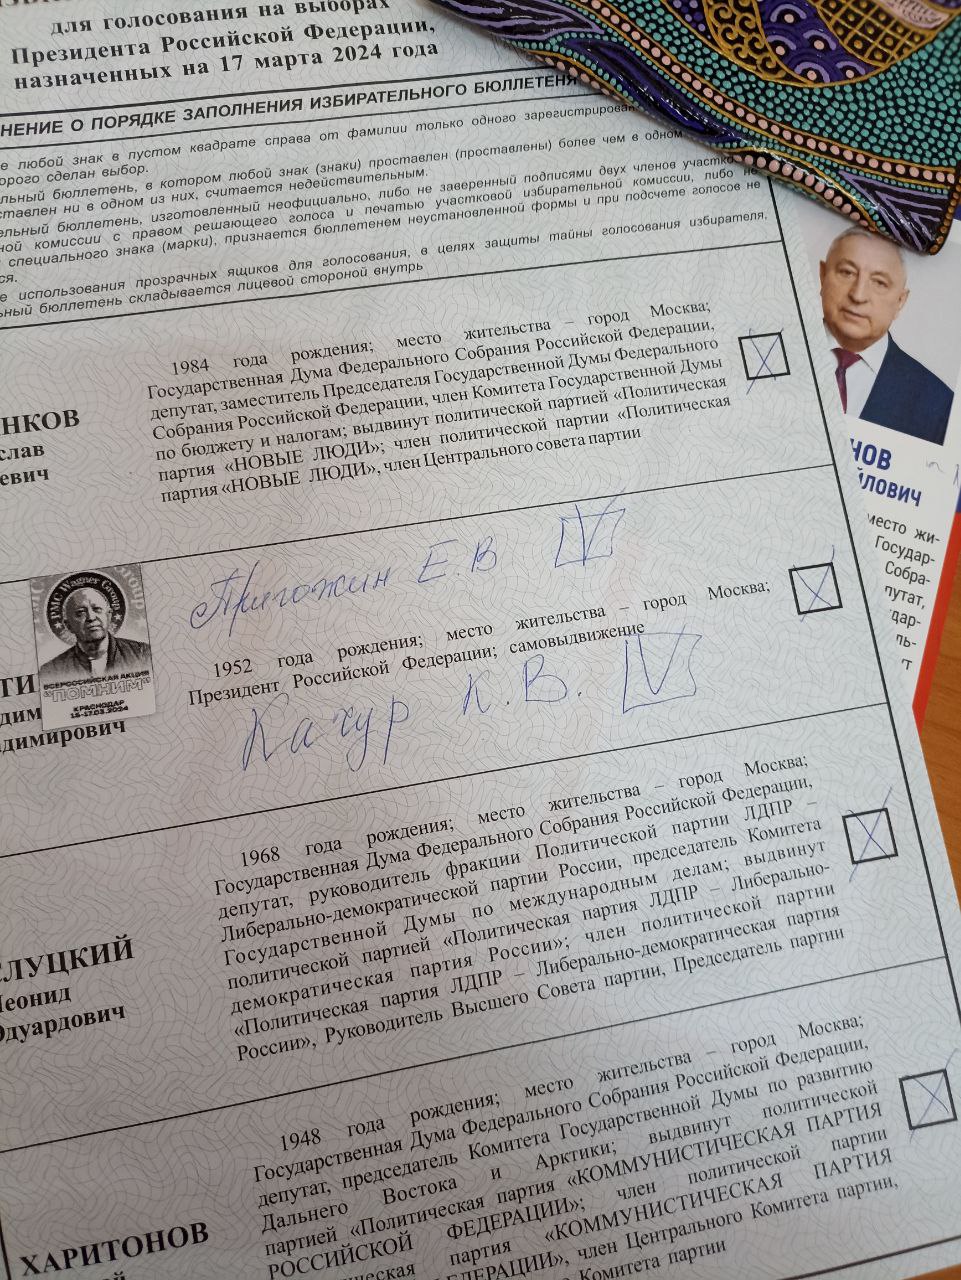 для голосования на выборах
Президента Российской Федерации,
назначенных на 17 марта 2024 года
НЕНИЕ О ПОРЯДКЕ ЗАПОЛНЕНИЯ ИЗБИРАТЕЛЬНОГО БЮЛЛЕТЕНЯ
любой знак в пустом квадрате справа от фамилии только одного
орого сделан выбор.
льный бюллетень, в котором любой знак (знаки) проставлен (проставлены) более чем в одном
ставлен ни в одном из них, считается недействительным.
ельный бюллетень, изготовленный неофициально, либо не заверенный подписями двух членов
ной комиссии с правом решающего голоса и печатью участковой избирательной комиссии, либо не
специального знака (марки), признается бюллетенем неустановленной формы и при подсчете голосов не
ся.
е использования прозрачных ящиков для голосования, в целях защиты тайны голосования избирателя,
ьный бюллетень складывается лицевой стороной внутрь
НКОВ
слав
евич
1984 года рождения; место жительства – город Москва;
Государственная Дума Федерального Собрания Российской Федерации,
депутат, заместитель Председателя Государственной Думы Федерального
Собрания Российской Федерации, член Комитета Государственной Думы
по бюджету и налогам; выдвинут политической партией «Политическая
партия «НОВЫЕ ЛЮДИ»; член политической партии «Политическая
партия «НОВЫЕ ЛЮДИ», член Центрального совета партии
Пригожин Е.В
PMC Wagner Group
ВСЕРОССИЙСКАЯ АКЦИЯ
"ПОМНИМ"
КРАСНОДАР
15-17.03.2024
ТИ
адим
адимирович
1952 года рождения; место жительства – город Москва;
Президент Российской Федерации; самовыдвижение
Качур К.В.
СЛУЦКИЙ
Леонид
Эдуардович
1968 года рождения; место жительства – город Москва;
Государственная Дума Федерального Собрания Российской Федерации,
депутат, руководитель фракции Политической партии ЛДПР –
Либерально-демократической партии России, председатель Комитета
Государственной Думы по международным делам; выдвинут
политической партией «Политическая партия ЛДПР – Либерально-
демократическая партия России»; член политической партии
«Политическая партия ЛДПР – Либерально-демократическая партия
России», Руководитель Высшего Совета партии, Председатель партии
ХАРИТОНОВ
1948 года рождения; место жительства – город Москва;
Государственная Дума Федерального Собрания Российской Федерации,
депутат, председатель Комитета Государственной Думы по развитию
Дальнего Востока и Арктики; выдвинут политической
партией «Политическая партия «КОММУНИСТИЧЕСКАЯ ПАРТИЯ
РОССИЙСКОЙ ФЕДЕРАЦИИ»; член политической партии
партия «КОММУНИСТИЧЕСКАЯ ПАРТИЯ
ФЕДЕРАЦИИ», член Центрального Комитета партии,
Комитета партии
НОВ
йлович
место жи-
Государ-
Собра-
путат,
дар-
ль-